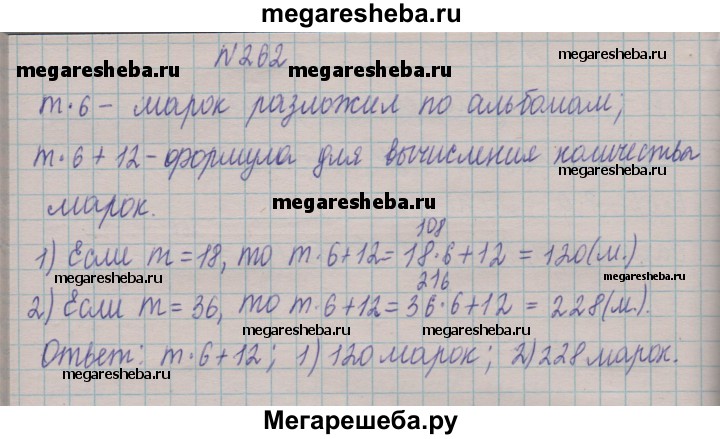 megaresheba.ru
N262
megaresheba.ru
megaresheba.ru
m·6 – марок разложил по альбомам;
megaresheba.ru
m·6 + 12 – формула для вычисления количества
megaresheba.ru
марок.
megaresheba.ru
108
1) Если m = 18, то m·6+12 = 18·6+12 = 120 (м.)
megaresheba.ru
megaresheba.ru
megaresheba.ru
216
2) Если m = 36, то m·6+12 = 36·6+12 = 228 (м.).
megaresheba.ru
megaresheba.ru
Ответ: m·6+12; 1) 120 марок; 2) 228 марок.
megaresheba.ru
Мегарешеба.ру